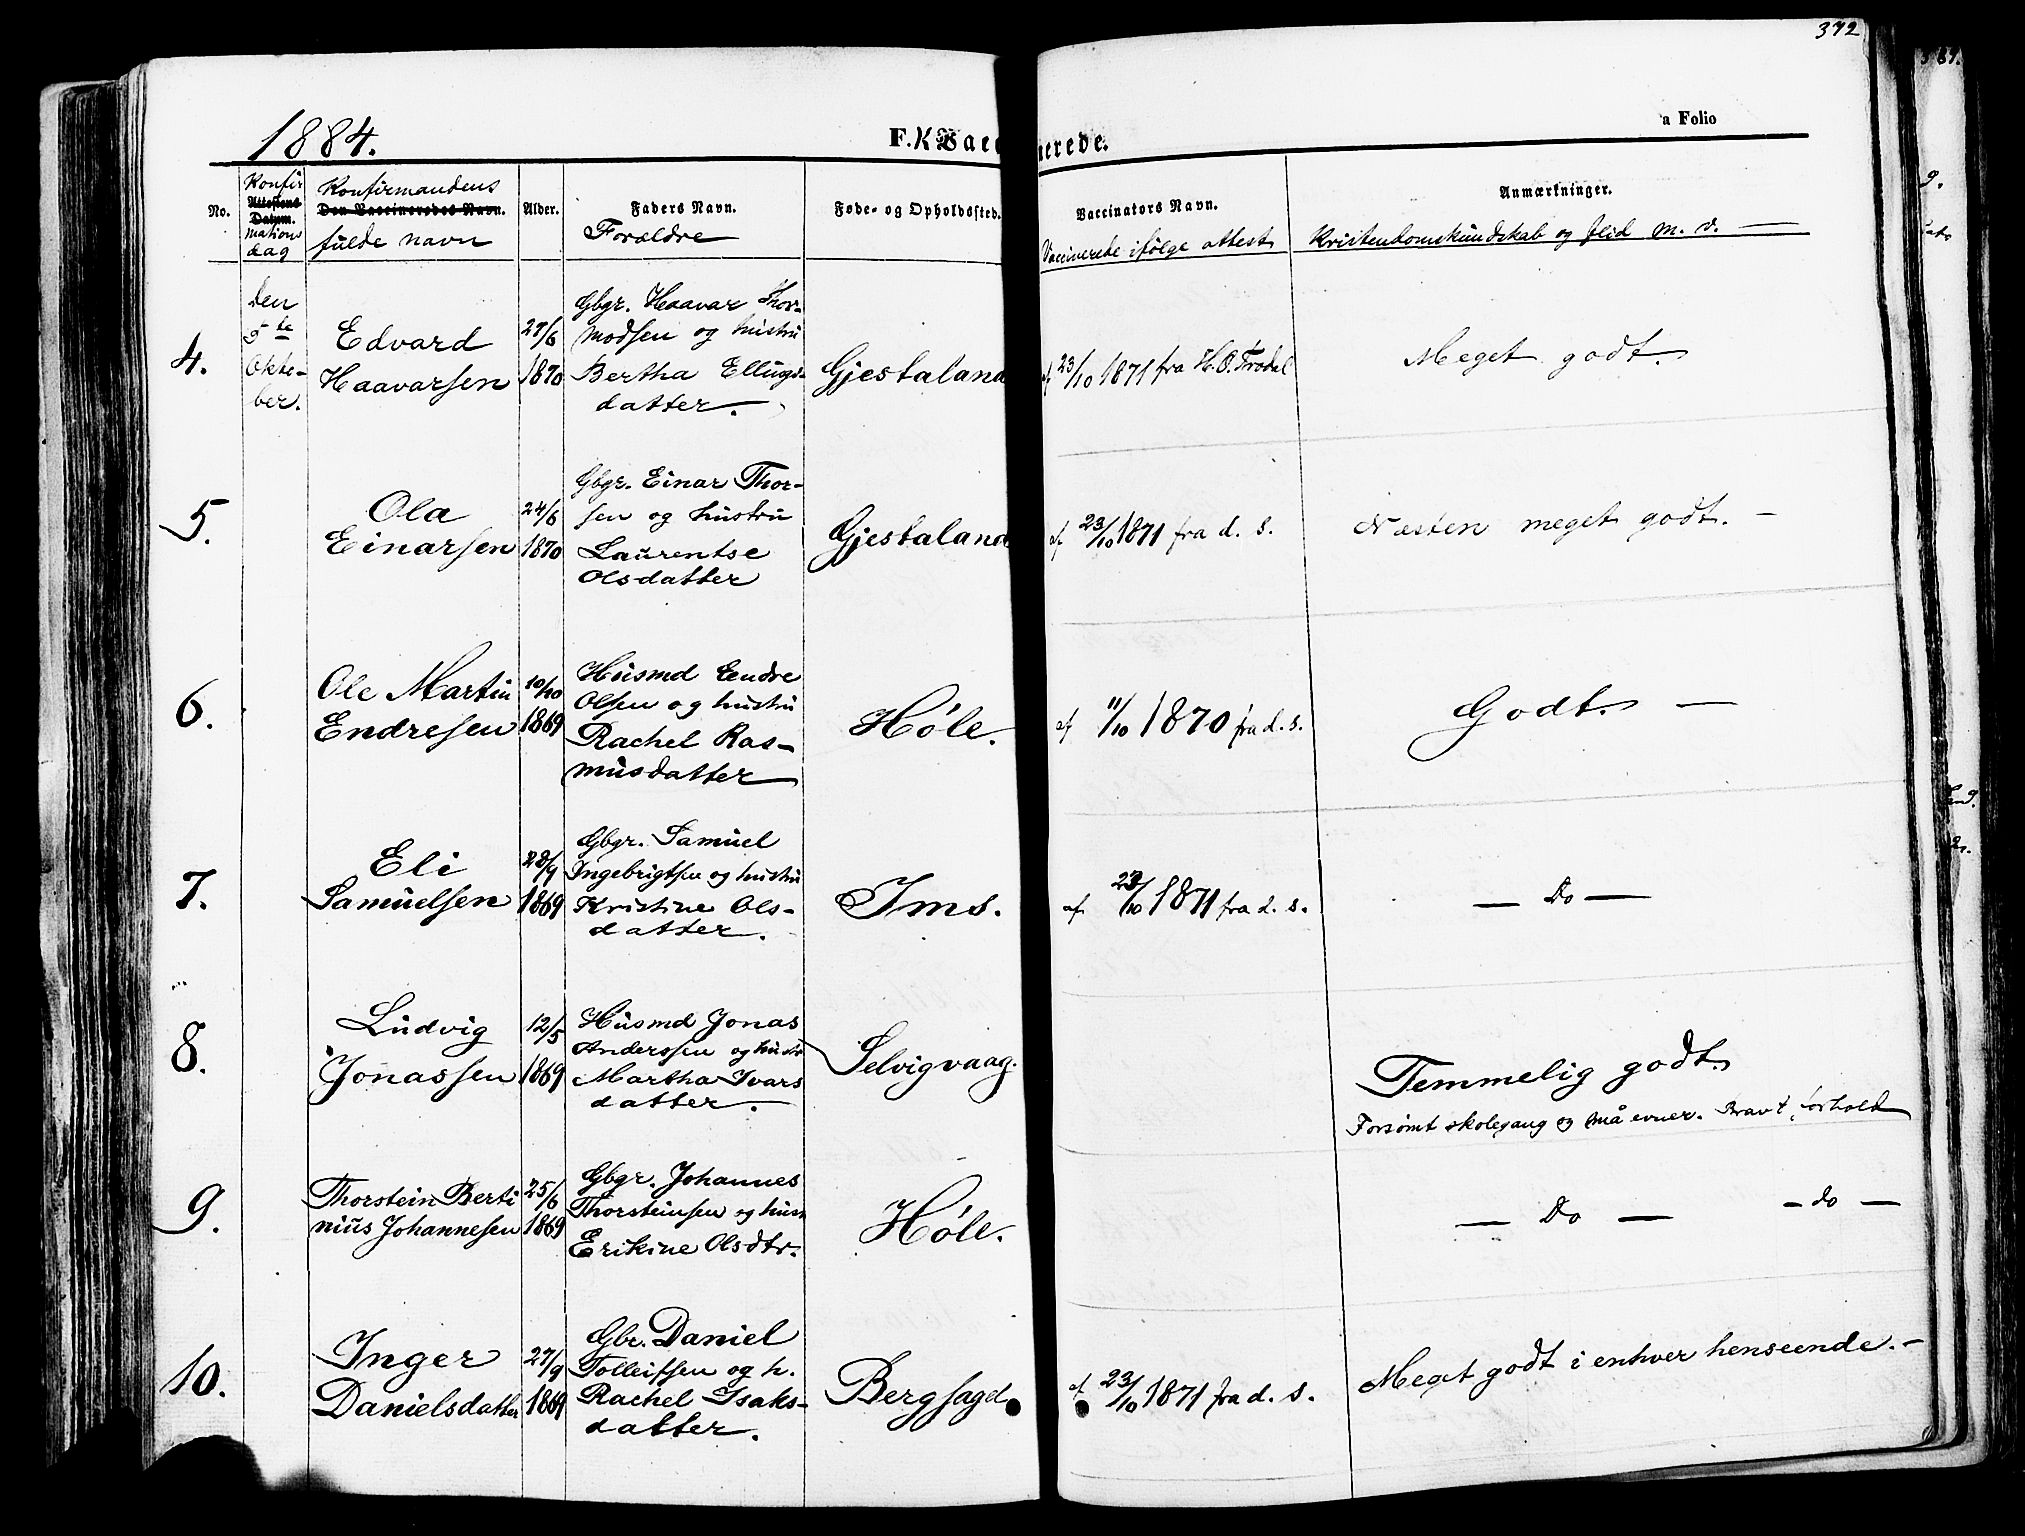 372
1884.
a Folio
F. K Vacc nerede.
No.
Konfir
Attestens
Datum.
mations
dag
Konfirmandens
Den Vaccineredes Navn.
fulde navn
Alder.
Faders Navn.
Forældre
Føde- og Opholdssted.
Vaccinators Navn.
Vaccinerede ifølge attest
Anmærkninger.
Kristendomskundskab og flid m. v. —
4.
Den
5te
Okto-
ber.
Edvard
Haavarsen
27/6
1870
Gbgr. Haavar Thor-
modsen og hustru
Bertha Ellings-
datter.
Gjestaland
af 23/10 1871 fra H. O. Trodal
Meget godt.
5.
Ola
Einarsen
24/6
1870
Gbgr. Einar Thor-
sen og hustru
Laurentse
Olsdatter
Gjestaland
af 23/10 1871 fra d. s.
Næsten meget godt. —
6.
Ole Martin
Endresen
10/10
1869
Husmd Endre
Olsen og hustru
Rachel Ras-
musdatter
Høle.
af 11/10 1870 fra d. s.
Godt. —
7.
Eli
Samuelsen
28/9
1869
Gbgr. Samuel
Ingebrigtsen og hustru
Kristine Ols-
datter.
Ims.
af 23/10 1871 fra d. s.
— Do —
8.
Ludvig
Jonassen
12/5
1869
Husmd Jonas
Anderssen og hustr
Martha Ivars
datter.
Selvigvaag.
Temmelig godt.
Forsømt skolegang og små evner. Bravt forhold
9.
Thorstein Berti
nius Johannesen
25/6
1869
Gbgr. Johannes
Thorsteinsen og hust
Erikine Olsdtr.
Høle.
— Do — — do —
10.
Inger
Danielsdatter
27/9
1869
Gbr. Daniel
Tolleifsen og h.
Rachel Isaks-
datter.
Bergsagel
af 23/10 1871 fra d. s.
Meget godt i enhver henseende. —